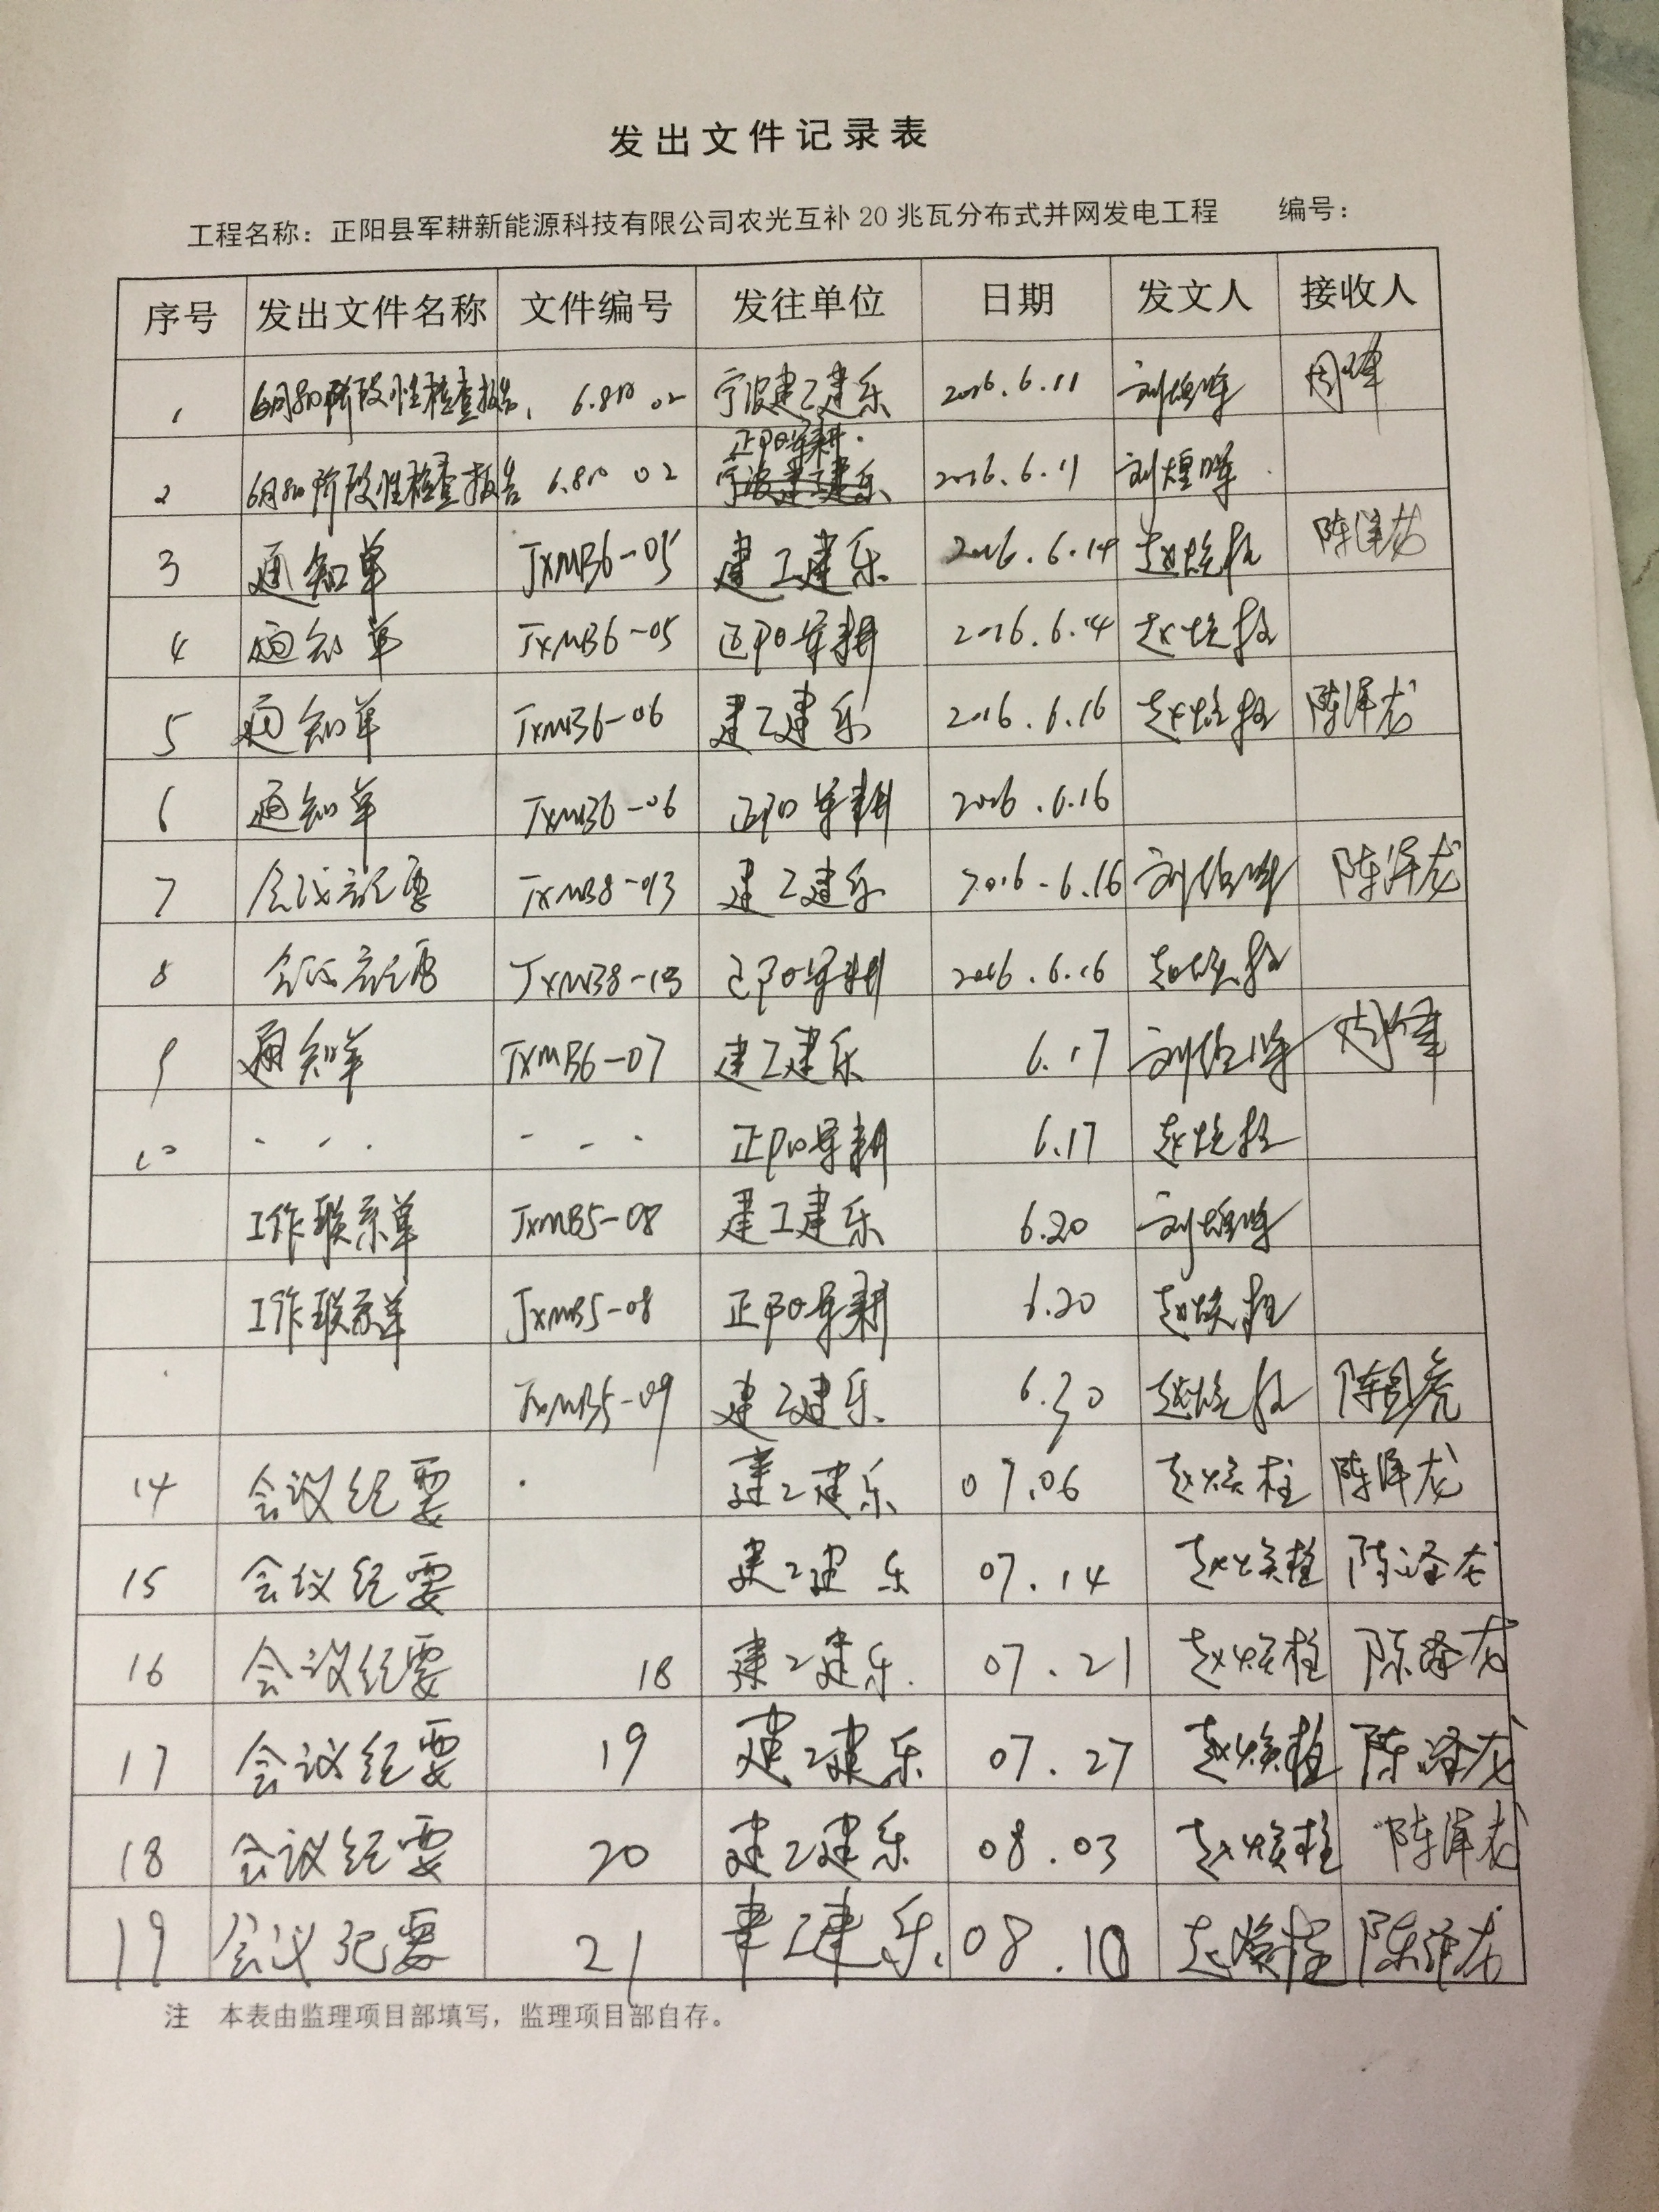 发出文件记录表
工程名称：正阳县军耕新能源科技有限公司农光互补20兆瓦分布式并网发电工程 编号：
序号 发出文件名称 文件编号 发往单位 日期 发文人 接收人
1 阶段性检查报告 宁波建工建乐 2016.6.11
正阳军耕
2 阶段性检查报告 宁波建工建乐 2016.6.11
3 通知单 JXMB6-05 建工建乐 2016.6.14 赵焕柱 陈泽龙
4 通知单 JXMB6-05 正阳军耕 2016.6.14 赵焕柱
5 通知单 JXMB6-06 建工建乐 2016.6.16 赵焕柱 陈泽龙
6 通知单 JXMB6-06 正阳军耕 2016.6.16
7 会议纪要 JXMB8-013 建工建乐 2016.6.16 陈泽龙
8 会议纪要 JXMB8-13 正阳军耕 2016.6.16 赵焕柱
9 通知单 JXMB6-07 建工建乐 6.17
10 正阳军耕 6.17 赵焕柱
工作联系单 JXMB5-08 建工建乐 6.20
工作联系单 JXMB5-08 正阳军耕 6.20 赵焕柱
JXMB5-09 建工建乐 6.30 赵焕柱
14 会议纪要 建工建乐 07.06 赵焕柱 陈泽龙
15 会议纪要 建工建乐 07.14 赵焕柱 陈泽龙
16 会议纪要 18 建工建乐 07.21 赵焕柱 陈泽龙
17 会议纪要 19 建工建乐 07.27 赵焕柱 陈泽龙
18 会议纪要 20 建工建乐 08.03 赵焕柱 陈泽龙
19 会议纪要 21 建工建乐 08.10 赵焕柱 陈泽龙
注 本表由监理项目部填写，监理项目部自存。